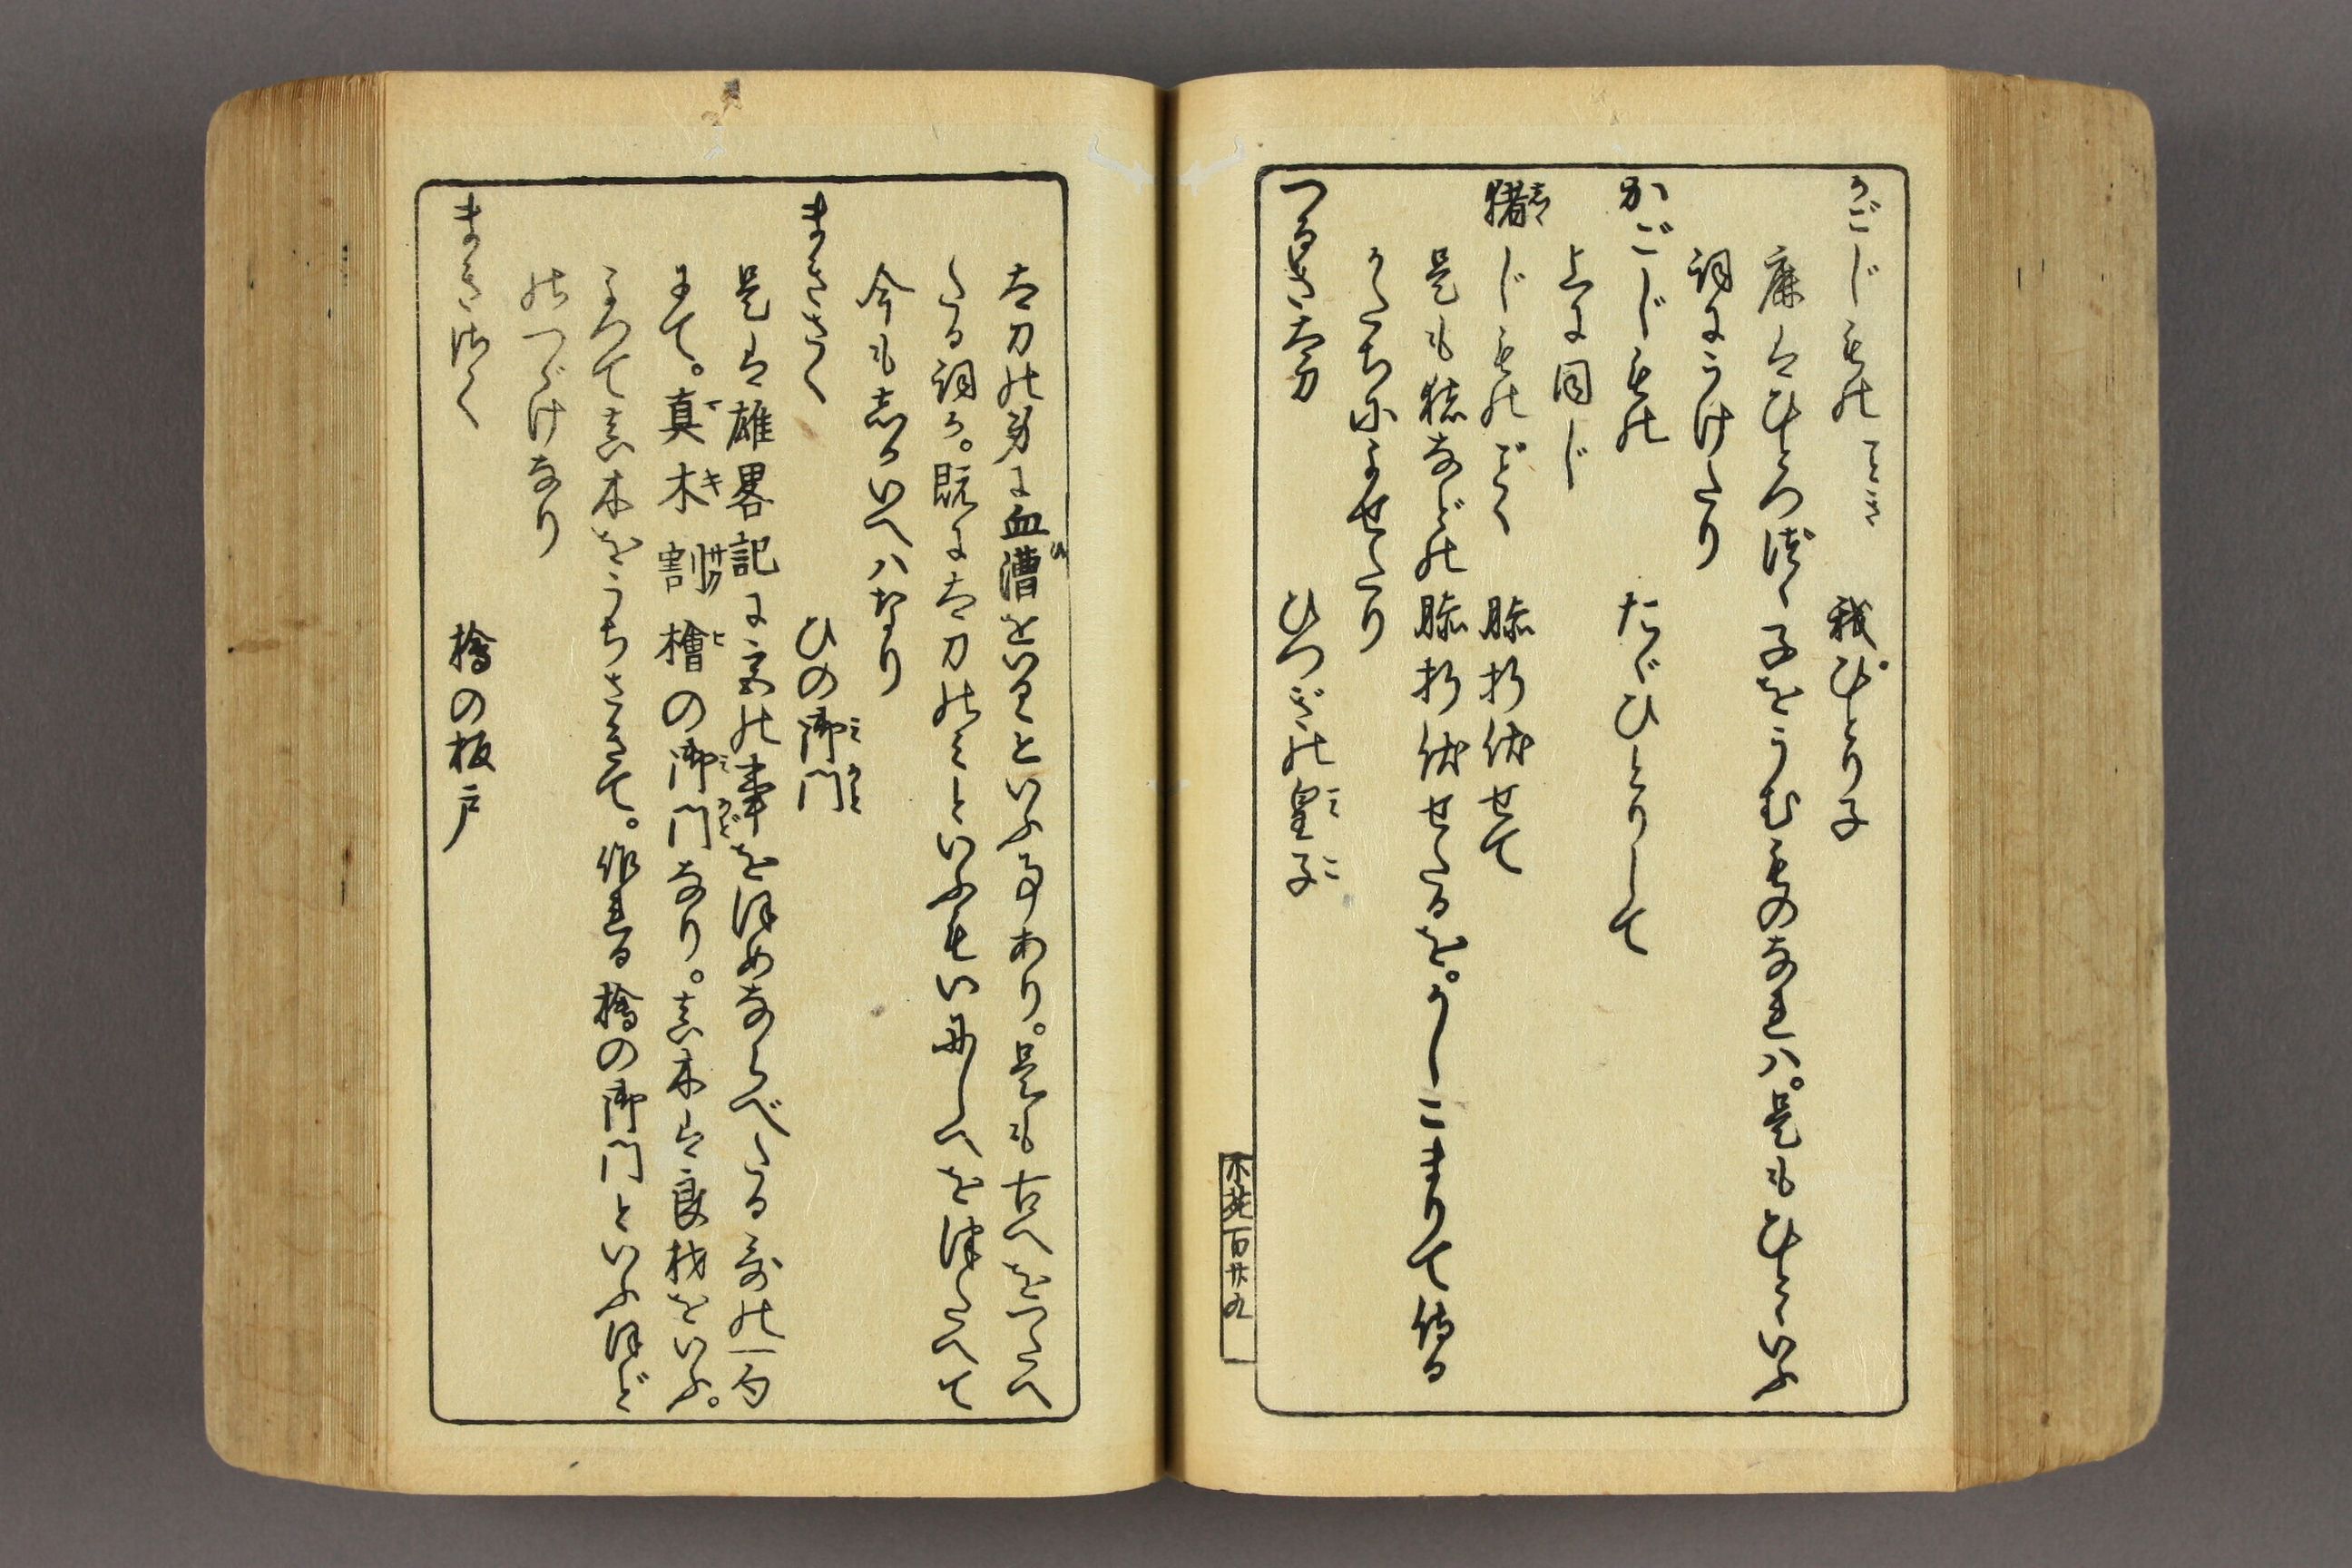 かごじもの 我ひとり子
鹿はひとつづゝ子をうむものなれハ。是もひとゝいふ
詞にうけたり
かごじもの たゞひとりして
上に同じ
猪じもの 膝折伏せて
是も猪などの膝折伏せたるを。かしこまりて侍る
かたちによせたり
つるき太刀 ひつぎの皇子
木芫百廿九
太刀の身に血漕をいるゝといふ事あり。是も古へをつたへ
たる詞か。既に太刀のみといふもいにしへを
今もしかいへハなり
まきさく ひの御門
是は雄畧記に の事をほめならべたる哥の一句
にて。真木割檜の御門なり。真木は良材をいふ。
よつて真木をうちさきて。作れる檜の御門といふほど
のつゞけなり
まきさく 檜の板戸